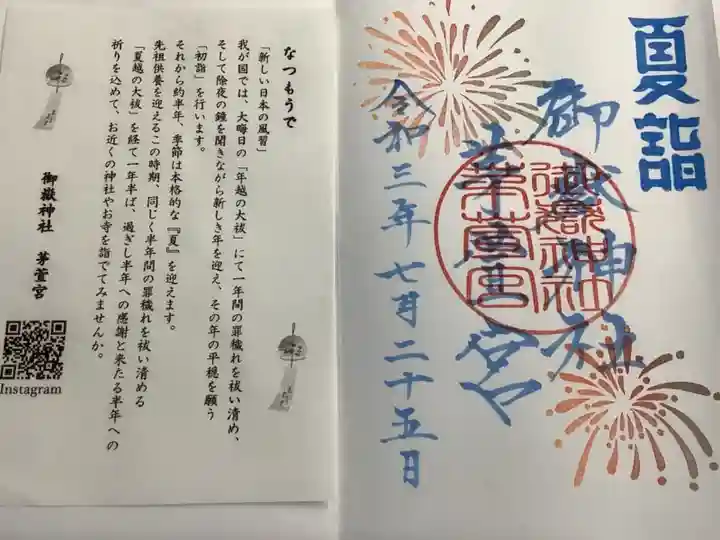 なつもうで
「新しい日本の風習」
我が国では、大晦日の「年越の大祓」にて一年間の罪穢れを祓い清め、
そして除夜の鐘を聞きながら新しき年を迎え、その年の平穏を願う
「初詣」を行います。
それから約半年、季節は本格的な『夏』を迎えます。
先祖供養を迎えるこの時期、同じく半年間の罪穢れを祓い清める
「夏越の大祓」を経て一年半ば、過ぎし半年への感謝と来たる半年への
祈りを込めて、お近くの神社やお寺を詣でてみませんか。
御嶽神社 茅萱宮
Instagram
夏詣
御嶽神社
茅萱宮
令和三年七月二十五日